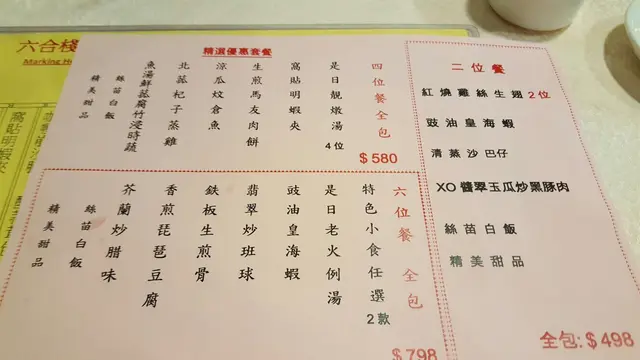 六合棧
精選優惠套餐
四位餐全包
是日靚燉湯 4位
窩貼明蝦夾
生煎馬友肉餅
涼瓜炆倉魚
北菇杞子蒸雞
魚湯鮮菇腐竹浸時蔬
絲苗白飯
精美甜品
$580
六位餐 全包
特色小食任選2款
是日老火例湯
豉油皇海蝦
翡翠炒班球
鉄板生煎骨
香煎琵琶豆腐
芥蘭炒腊味
絲苗白飯
精美甜品
$798
二位餐
紅燒雞絲生翅2位
豉油皇海蝦
清蒸沙巴仔
XO醬翠玉瓜炒黑豚肉
絲苗白飯
精美甜品
全包:$498